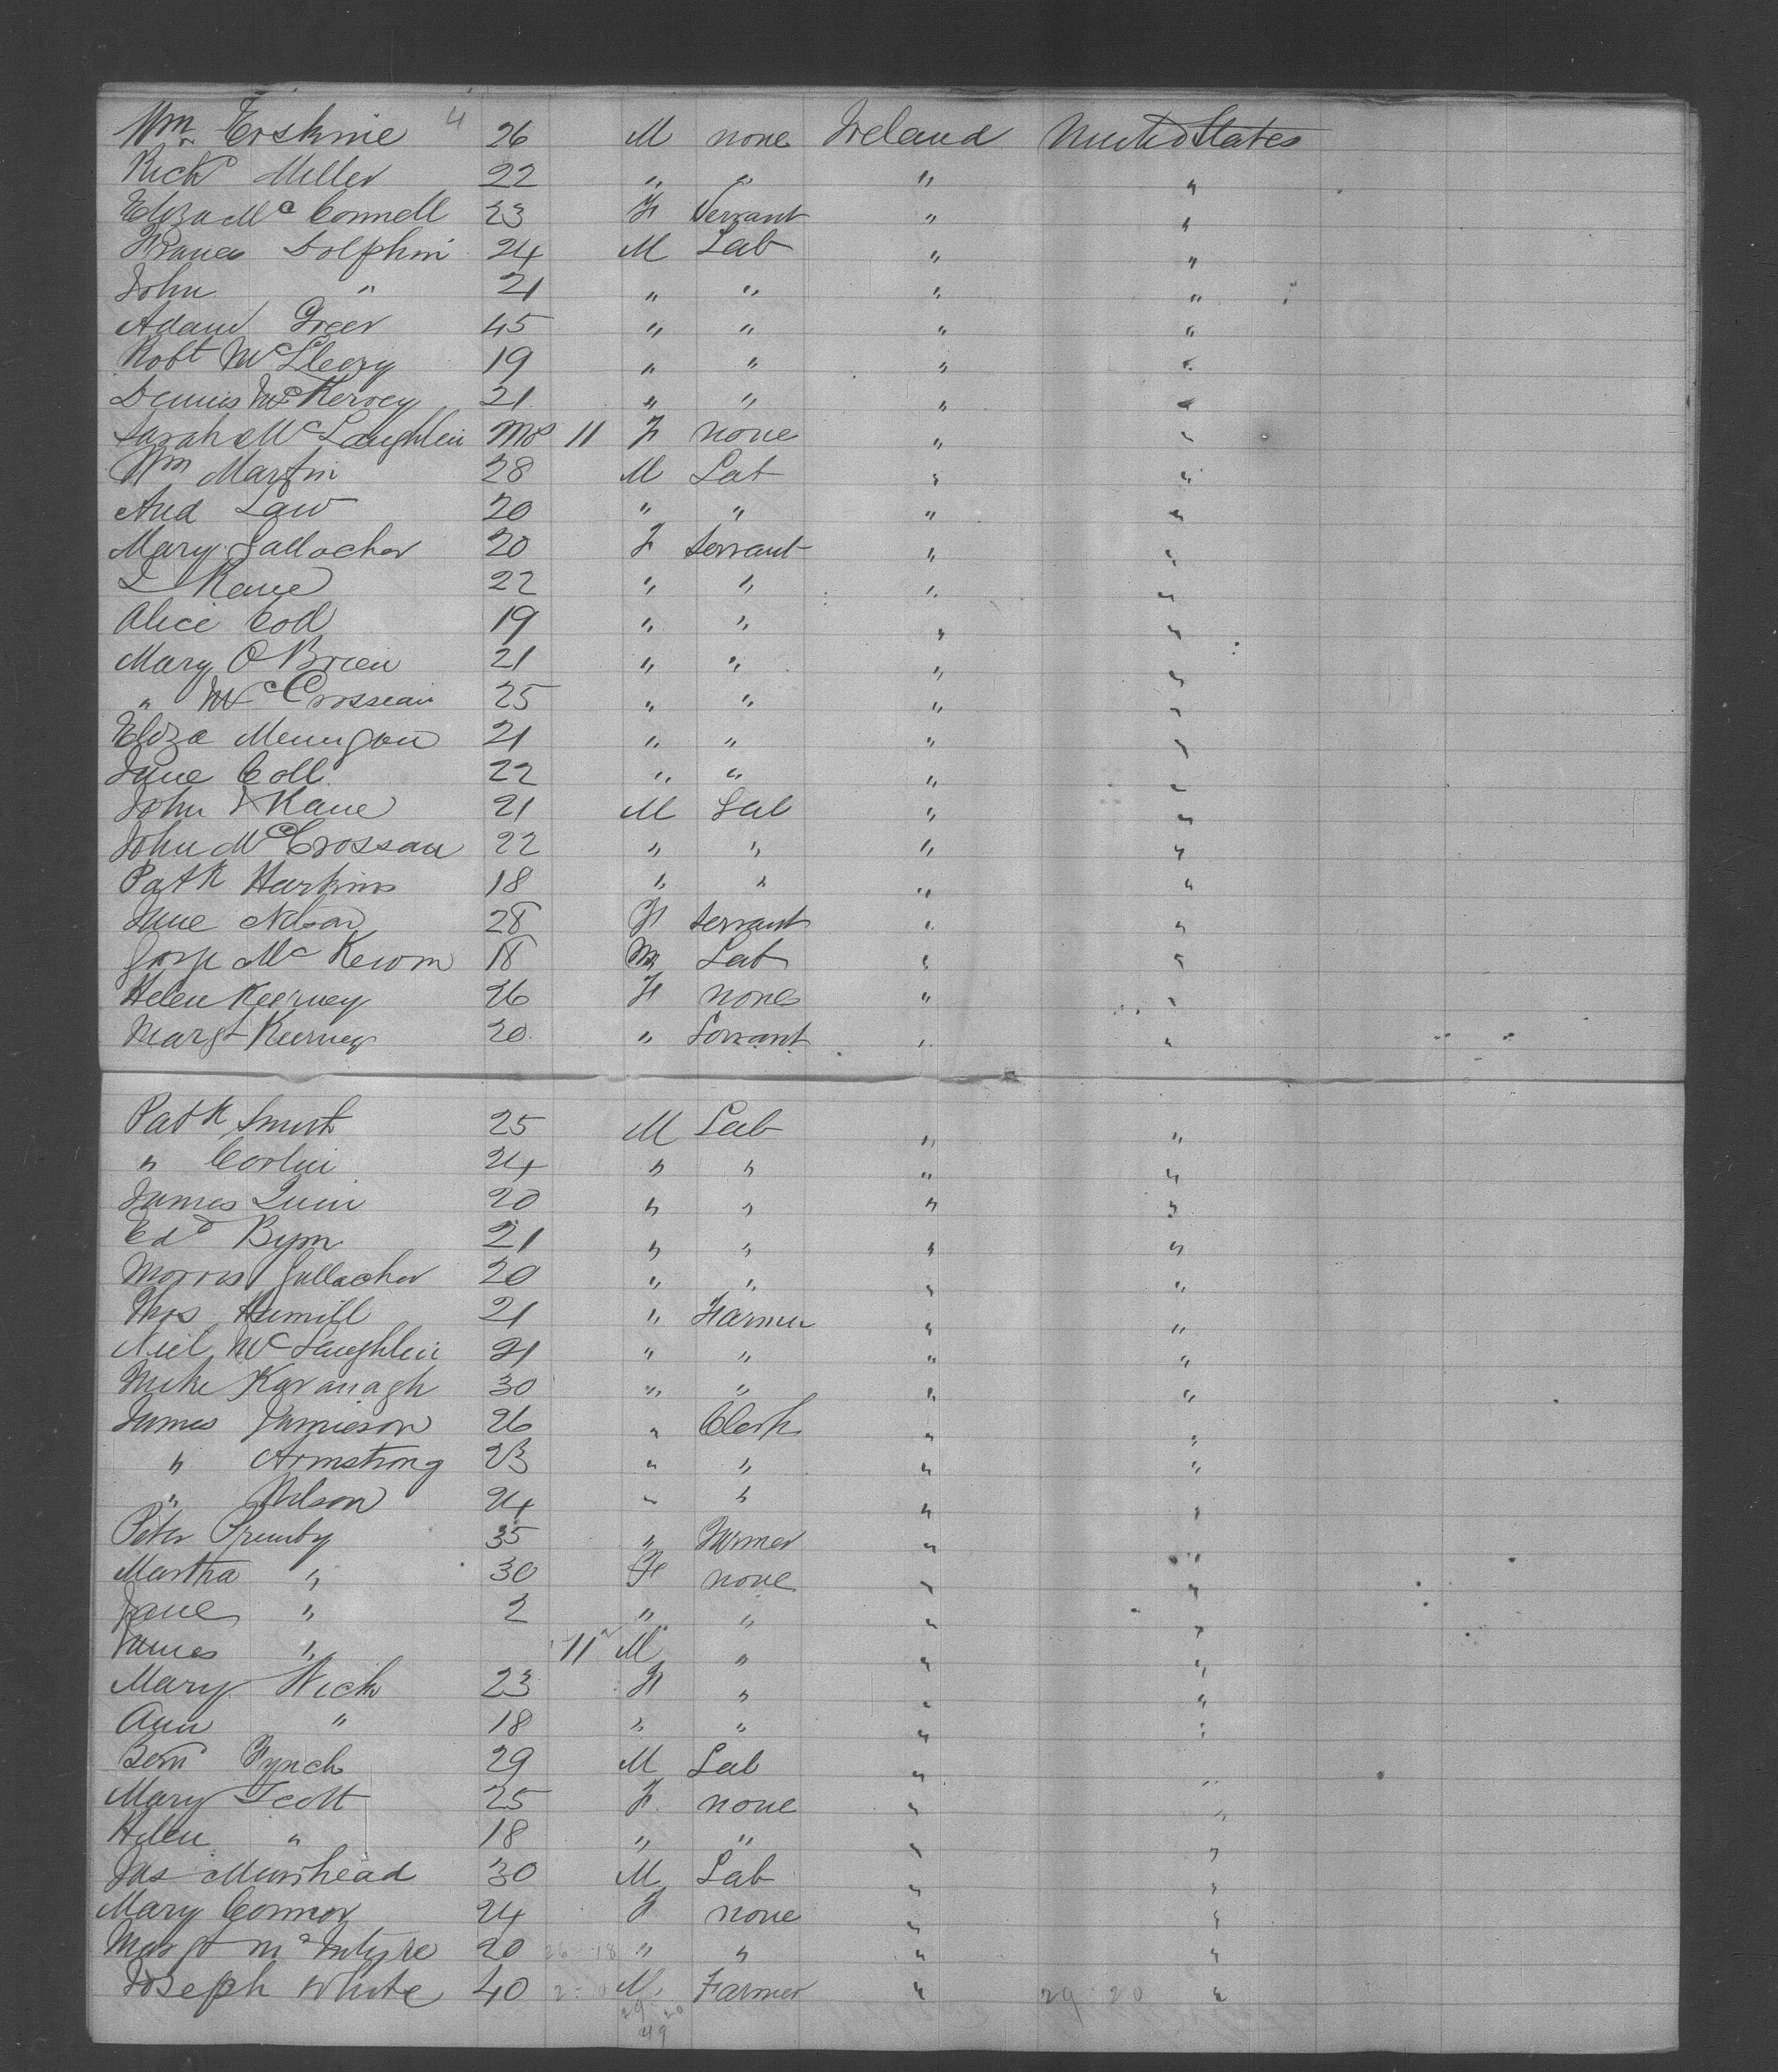 Wm Erskine 4 26 M none Ireland United States
Richd Miller 22 " " " "
Eliza Mc Connell 23 F Servant " "
Francis Dolphin 24 M Lab " "
John " 21 " " " "
Adam Greer 45 " " " "
Robt McCleery 19 " " " "
Dennis McKervey 21 " " " "
Sarah McLaughlin Mos 11 F none " "
Wm Martin 28 M Lab " "
And Law 20 " " " "
Mary Gallocher 20 F Servant " "
Kane 22 " " " "
Alice Coll 19 " " " "
Mary O Brien 21 " " " "
" McCrossan 25 " " " "
Eliza 21 " " " "
Jane Coll 22 " " " "
John Kane 21 M Lab " "
John McCrossan 22 " " " "
Patk Harkins 18 " " " "
Jane Nelson 28 F Servant " "
Mc Keown 18 M Lab " "
Helen Keerney 26 F none " "
Margt Keerney 20 " Servant " "
Patk 25 M Lab " "
" Corlin 24 " " " "
James Quin 20 " " " "
Edd Byrn 21 " " " "
Morris Gallacher 20 " " " "
Thos Hamill 21 " Farmer " "
Niel McLaughlin 21 " " " "
Mike Kavanagh 30 " " " "
James Jamieson 26 " Clerk " "
" Armstrong 23 " " " "
" Wilson 24 " " " "
Peter 35 " Farmer " "
Martha " 30 F none " "
Jane " 2 " " " "
James " 11 M " " "
Mary 23 F " " "
Ann " 18 " " " "
Bern 29 M Lab " "
Mary Scott 25 F none " "
Helen " 18 " " " "
Jas Muirhead 30 M Lab " "
Mary Connor 24 F none " "
Margt McIntyre 20 26 18 " " " "
Joseph White 40 2 M Farmer " 29 20 "
29 20
49